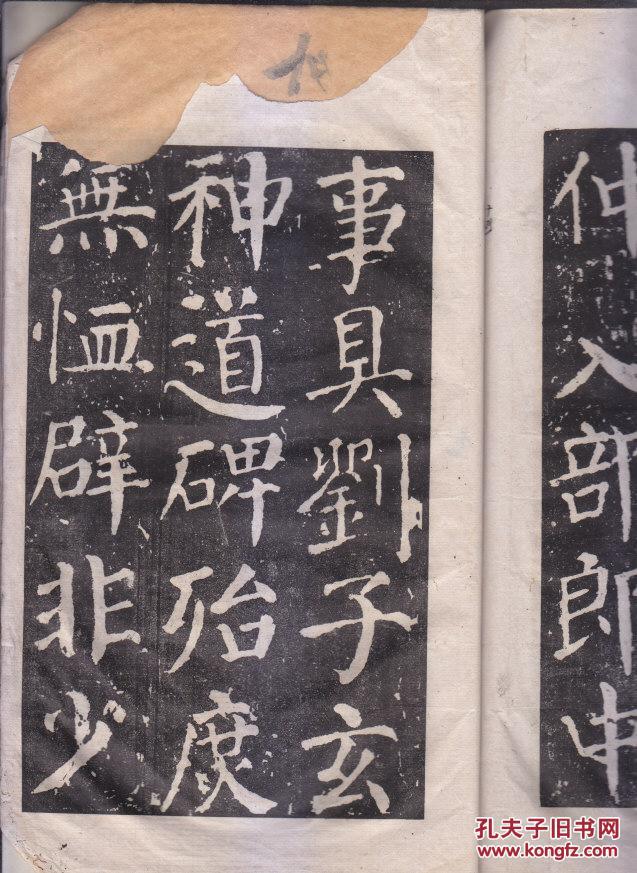 仲入部郎中
事具劉子玄
神道碑殆庶
無恤辟非少
孔夫子旧书网
www.kongfz.com